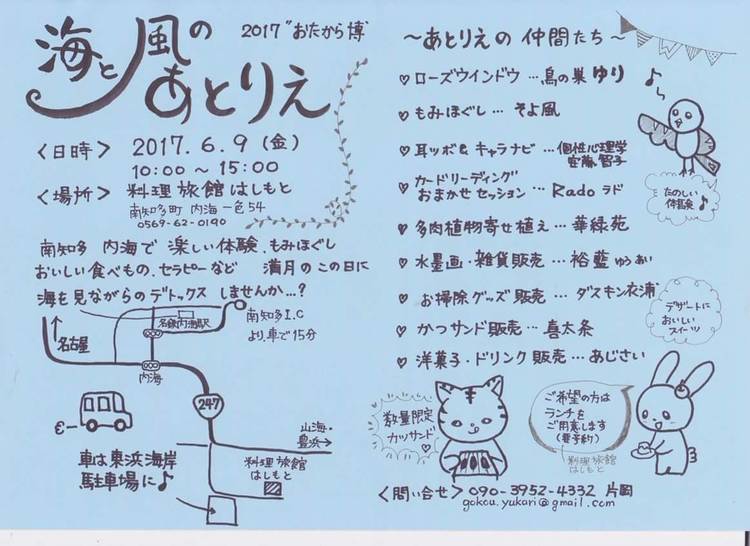 海と風の
あとりえ
2017 "おたから博"
<日時> 2017.6.9 (金)
10:00 ～ 15:00
<場所> 料理旅館はしもと
南知多町 内海 一色54
0569-62-0190
南知多 内海で 楽しい体験、もみほぐし
おいしい食べもの、セラピーなど 満月の この日に
海を見ながらのデトックス しませんか…?
名古屋
名鉄内海駅
南知多I.C
より、車で15分
内海
247
山海・
豊浜→
料理旅館
はしもと
車は東浜海岸
駐車場に♪
～あとりえの 仲間たち～
♡ローズウインドウ …鳥の巣 ゆり
♡もみほぐし … そよ風
♡耳ツボ& キャラナビ …個性心理学
安藤 智子
♡カードリーディング
おまかせセッション … Rado ラド
♡多肉植物寄せ植え … 華緑苑
♡水墨画・雑貨販売 … 裕藍 ゆうあい
♡お掃除グッズ 販売 … ダスキン衣浦
♡かつサンド販売 … 喜太条
♡洋菓子・ドリンク 販売 … あじさい
たのしい
体験♪
デザートに
おいしい
スイーツ
数量限定
カツサンド♡
ご希望の方は
ランチを
ご用意します
(要予約)
料理旅館
はしもと
<問い合せ> 090-3952-4332 片岡
gokou.yukari@gmail.com